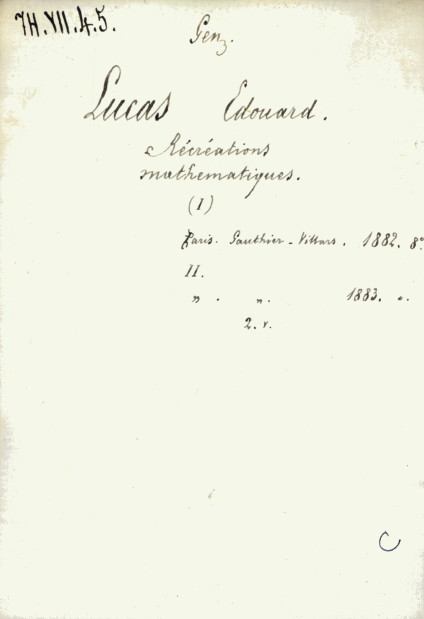 7H.VII.4.5.
Gen.
Lucas Edouard.
Récréations
mathematiques.
(I)
Paris. Gauthier-Villars. 1882. 8°
II.
„ . „. 1883. „.
2. v.
C